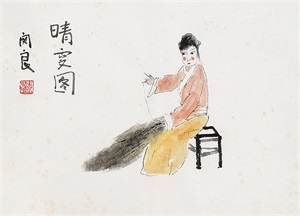 晴雯图
関良